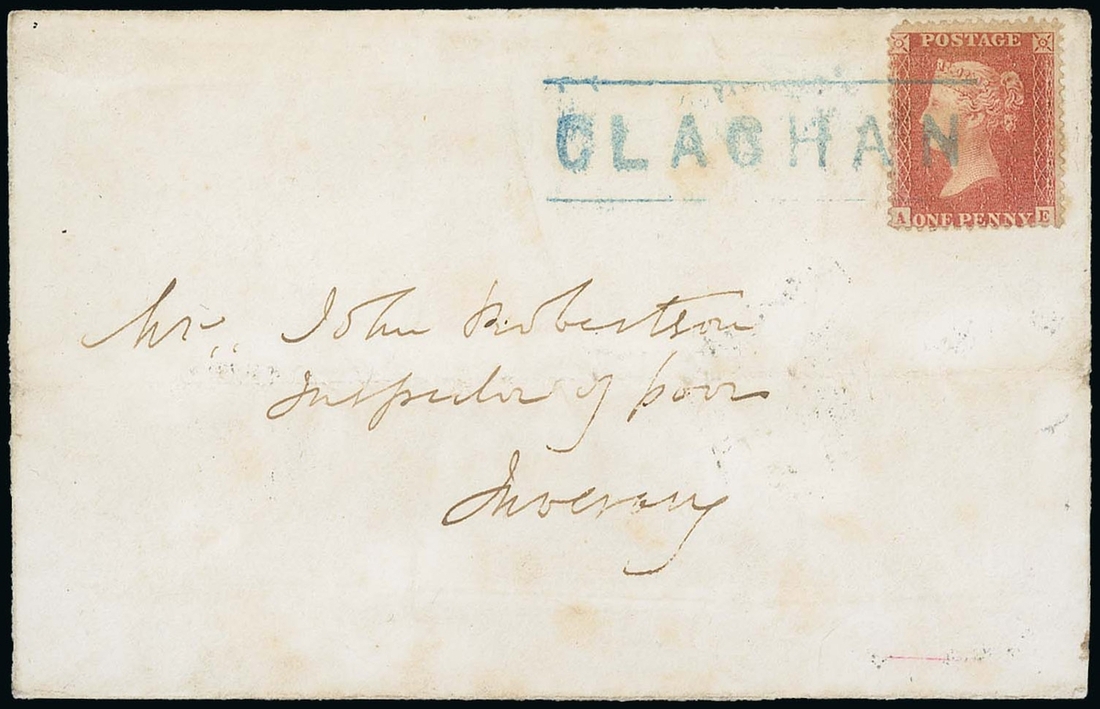 POSTAGE
CLACHAN
A ONE PENNY E
Mr,, John Robertson
Inspector of poor
Inverary